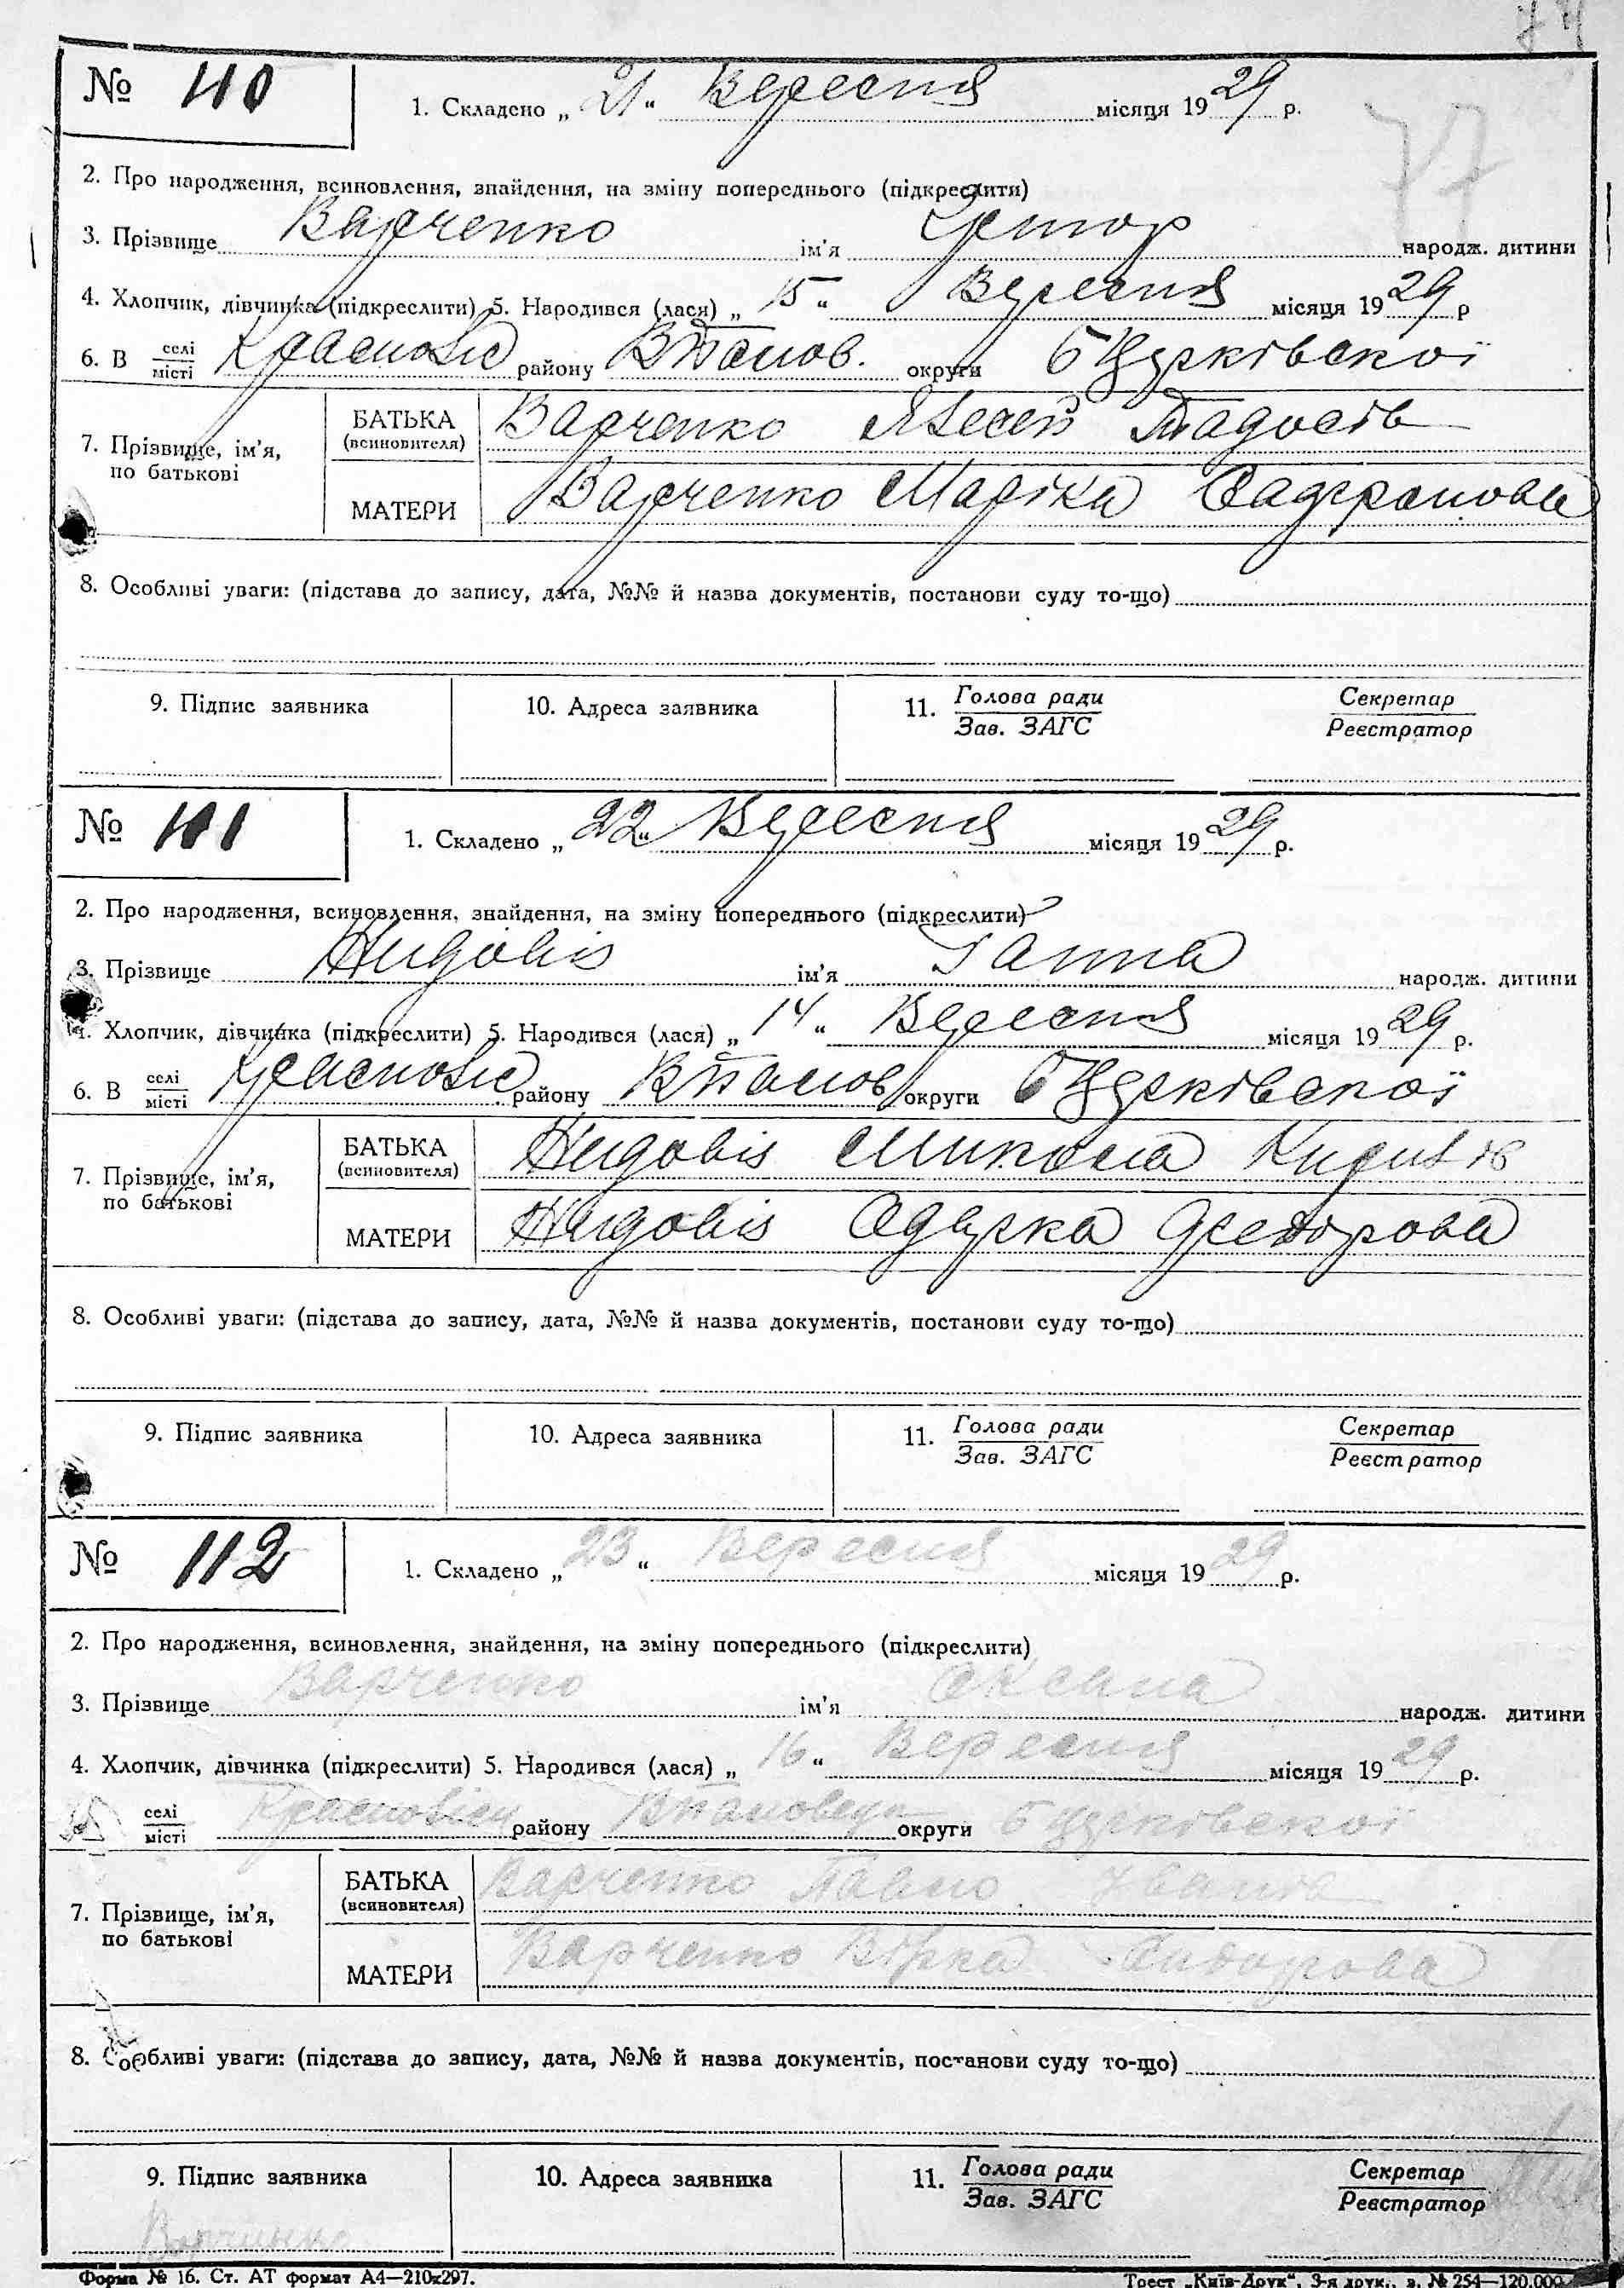 77
№ 110
1. Складено „ 21 “ Вересня місяця 19 29 р.
2. Про народження, всиновлення, знайдення, на зміну попереднього (підкреслити)
3. Прізвище Варченко ім'я народж. дитини
4. Хлопчик, дівчинка (підкреслити) 5. Народився (лася) „ 15 “ Вересня місяця 19 29 р
6. В селі/місті району округи БЦерківської
7. Прізвище, ім'я, по батькові
БАТЬКА (всиновителя) Варченко
МАТЕРИ Варченко Марійка
8. Особливі уваги: (підстава до запису, дата, №№ й назва документів, постанови суду то-що)
9. Підпис заявника 10. Адреса заявника 11. Голова ради/Зав. ЗАГС Секретар/Реєстратор
№ 111
1. Складено „ 22 “ Вересня місяця 19 29 р.
2. Про народження, всиновлення, знайдення, на зміну попереднього (підкреслити)
3. Прізвище ім'я Ганна народж. дитини
4. Хлопчик, дівчинка (підкреслити) 5. Народився (лася) „ 14 “ Вересня місяця 19 29 р.
6. В селі/місті району округи БЦерківської
7. Прізвище, ім'я, по батькові
БАТЬКА (всиновителя) Микола
МАТЕРИ Одарка
8. Особливі уваги: (підстава до запису, дата, №№ й назва документів, постанови суду то-що)
9. Підпис заявника 10. Адреса заявника 11. Голова ради/Зав. ЗАГС Секретар/Реєстратор
№ 112
1. Складено „ 23 “ Вересня місяця 19 29 р.
2. Про народження, всиновлення, знайдення, на зміну попереднього (підкреслити)
3. Прізвище Варченко ім'я Оксана народж. дитини
4. Хлопчик, дівчинка (підкреслити) 5. Народився (лася) „ 16 “ Вересня місяця 19 29 р.
селі/місті району округи БЦерківської
7. Прізвище, ім'я, по батькові
БАТЬКА (всиновителя) Варченко Павло Іванів
МАТЕРИ Варченко Вірка Сидорова
8. Особливі уваги: (підстава до запису, дата, №№ й назва документів, постанови суду то-що)
9. Підпис заявника 10. Адреса заявника 11. Голова ради/Зав. ЗАГС Секретар/Реєстратор
Форма № 16. Ст. АТ формат А4—210х297. Трест „Київ-Друк“, 3-я друк., з. № 254—120.000